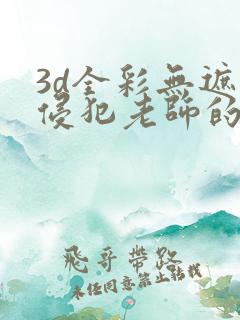 3d全彩無遮
侵犯老師的
飛哥帶路
未经同意禁止轉載